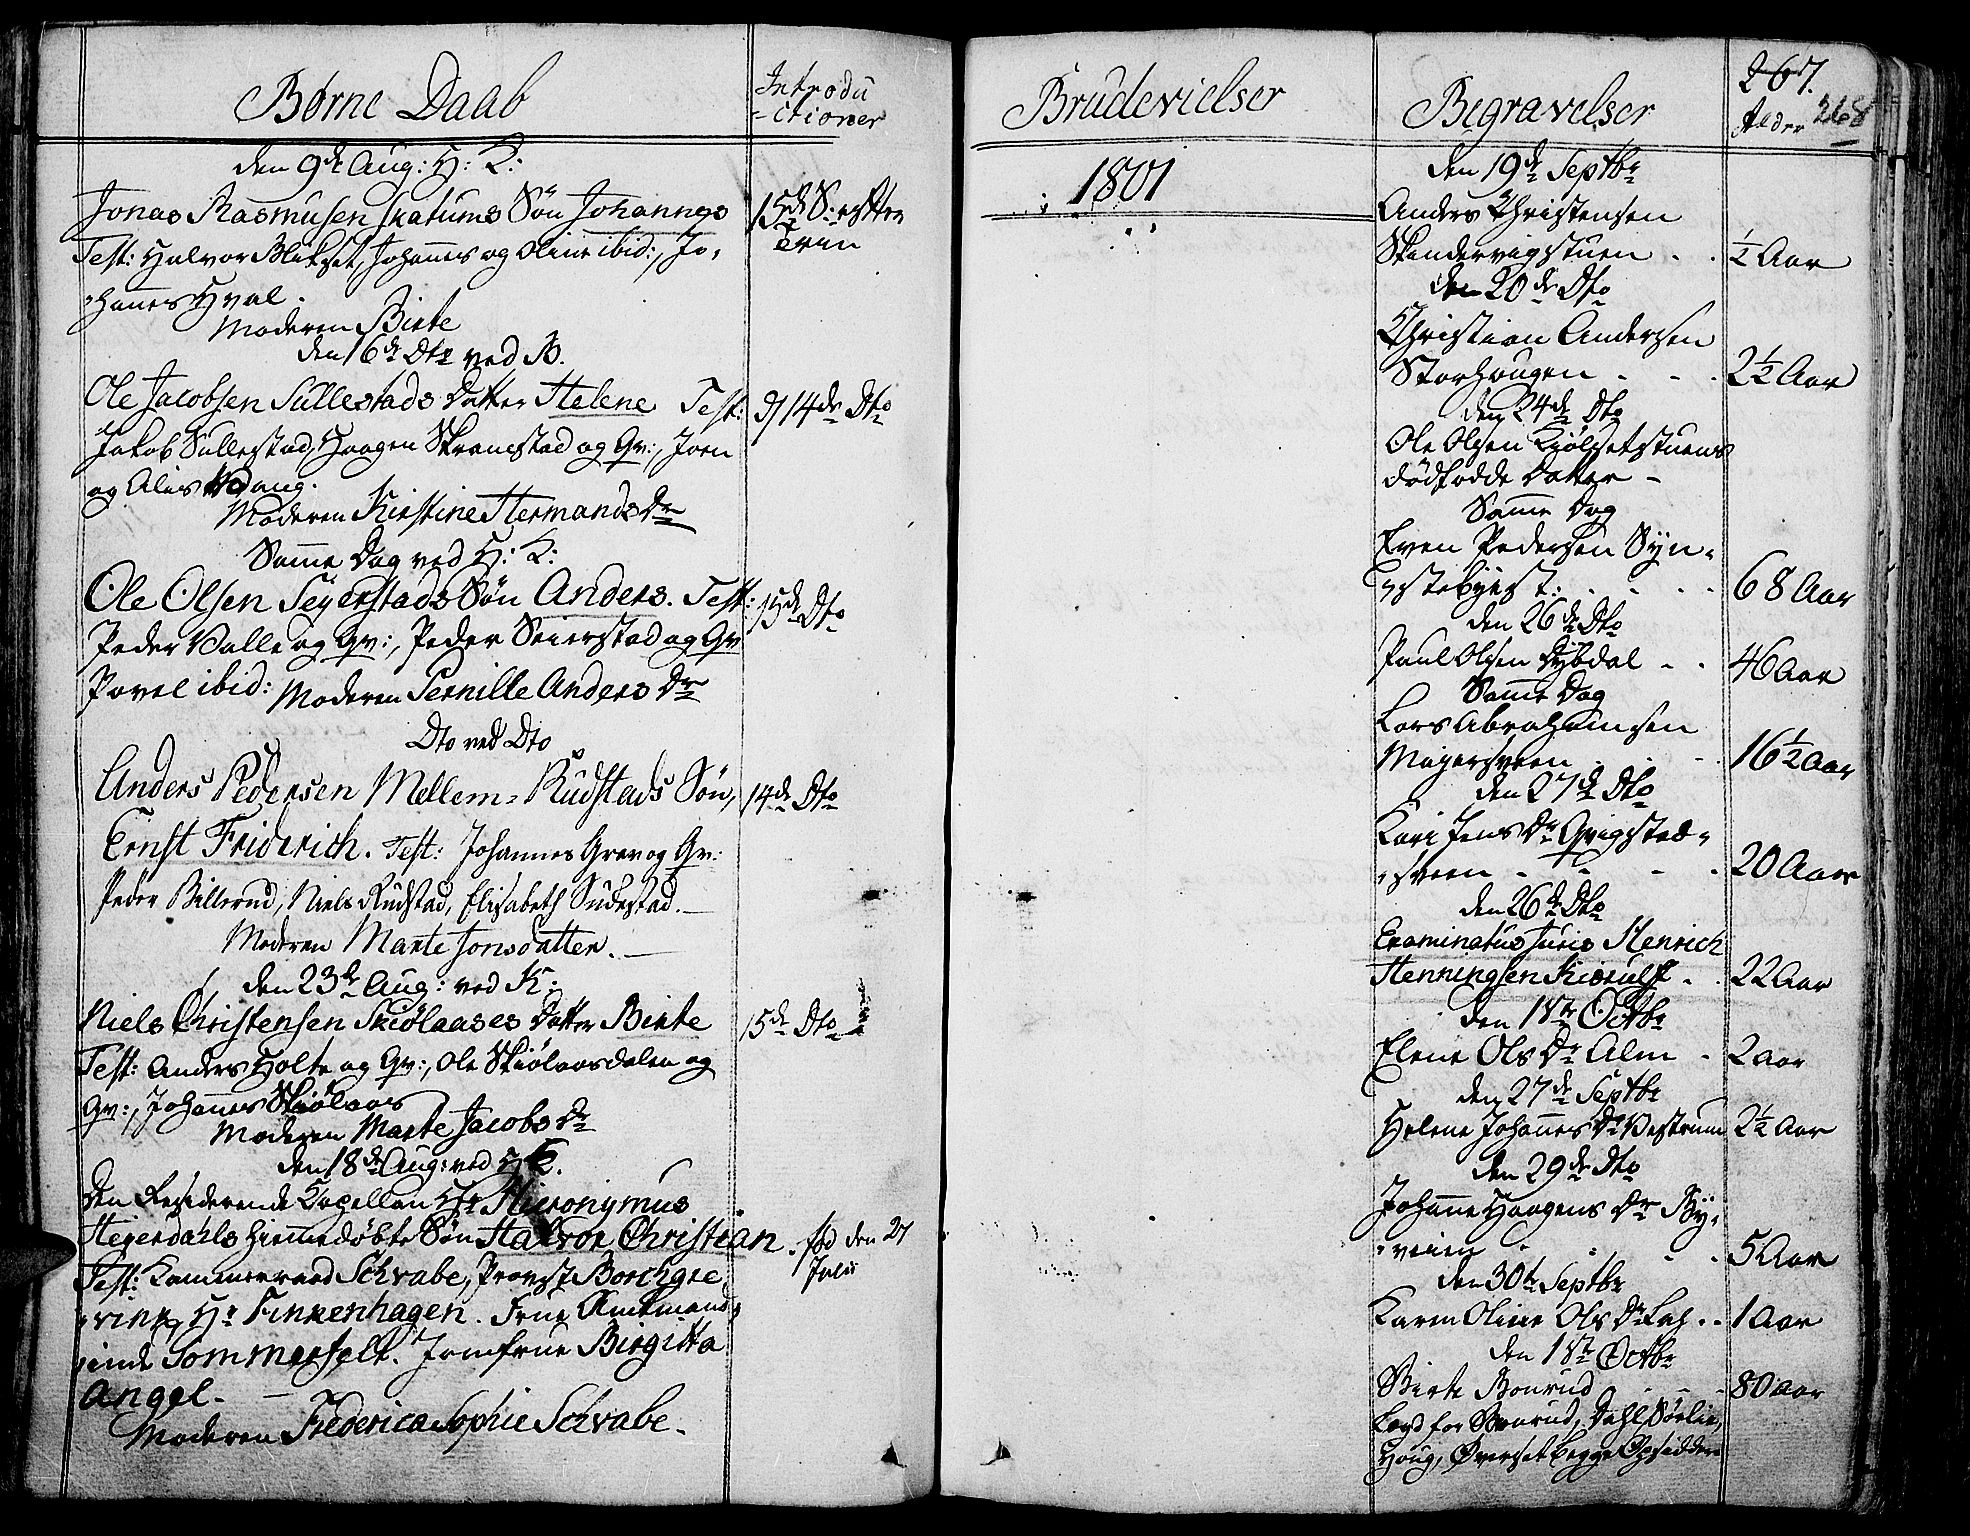 Børne Daab
Introdu
-ctioner
den 9de Aug: H: K:
Jonas Rasmusen Skatums Søn Johannes
15de S: efter
Trin
Test: Halvor Blikset, Johannes og Oline ibid:, Jo-
-hannes Hval.
Moderen Birte
den 16de Dto ved B.
Ole Jacobsen Sullestads Datter Helene Test:
9/14de Dto
Jakob Sullestad, Haagen Skramstad og Gv:, Joen
og Alis Vang.
Moderen Kirstine HermandsDr
Samme Dag ved H: K:
Ole Olsen Seyerstads Søn Anders. Test:
15de Dto
Peder Valle og Gv:, Peder Seierstad og Gv
Povel ibid: Moderen Pernille AndersDr
Dto ved Dto
Anders Pedersen Mellem-Rudstads Søn,
14de Dto
Ernst Friderich. Test: Johannes Grav og Gv:
Peder Billerud, Niels Rudstad, Elisabeth Sudestad.
Moderen Marte Jonsdatter.
den 23de Aug: ved K:
Niels Christensen Skiølaases Datter Birte
15de Dto
Test: Anders Holte og Gv:, Ole Skiølaasdalen og
Gv:, Johannes Skiølaas
Moderen Marte JacobsDr
den 18de Aug: ved H K.
Den Residerende Capellan Hr Hieronymus
Heyerdahls hiemmedøbte Søn Halvor Christian
fød den 27
Julii
Test: Kammerraad Schrabe, Provst Borchgre-
-vink, Hr Finkenhagen. Frue Amtmand-
-inde Sommerfelt. Jomfrue Birgitta
Angel.
Moderen Frederica Sophie Schrabe.
Brudevielser
1801
Begravelser
267.
Alder 268
den 19de Septbr
Anders Christensen
Skindervigstuen . . ½ Aar
den 20de Dto
Christian Andersen
Storhougen . . . 2½ Aar
den 24de Dto
Ole Olsen Kiølsetstuens
dødfødde Datter -
Samme Dag
Even Pedersen Syn-
-stebyest: . . . . 68 Aar
den 26de Dto
Paul Olsen Dybdal . . 46 Aar
Samme Dag
Lars Abrahamsen
Majersveen . . . 16½ Aar
den 27de Dto
Kari JensDr Gvigstad-
-sveen . . . . 20 Aar
den 26de Dto
Examinatus Juris Henrich
Henningsen Kierulf . . 22 Aar
den 18te Octbr
Elene OlsDr Alm . 2 aar
den 27de Septbr
Helene JohannesDr Vestrum 2½ Aar
den 29de Dto
Johanne HaagensDr Ry-
-veien . . . . 5 Aar
den 30te Septbr
Karen Oline OlsDr Lah . . 1 Aar
den 18te Octbr
Birte Bonrud . . . 80 aar
Lagd for Bonrud, Dahl Sørlie,
Houg, Øverset begge Opsiddere